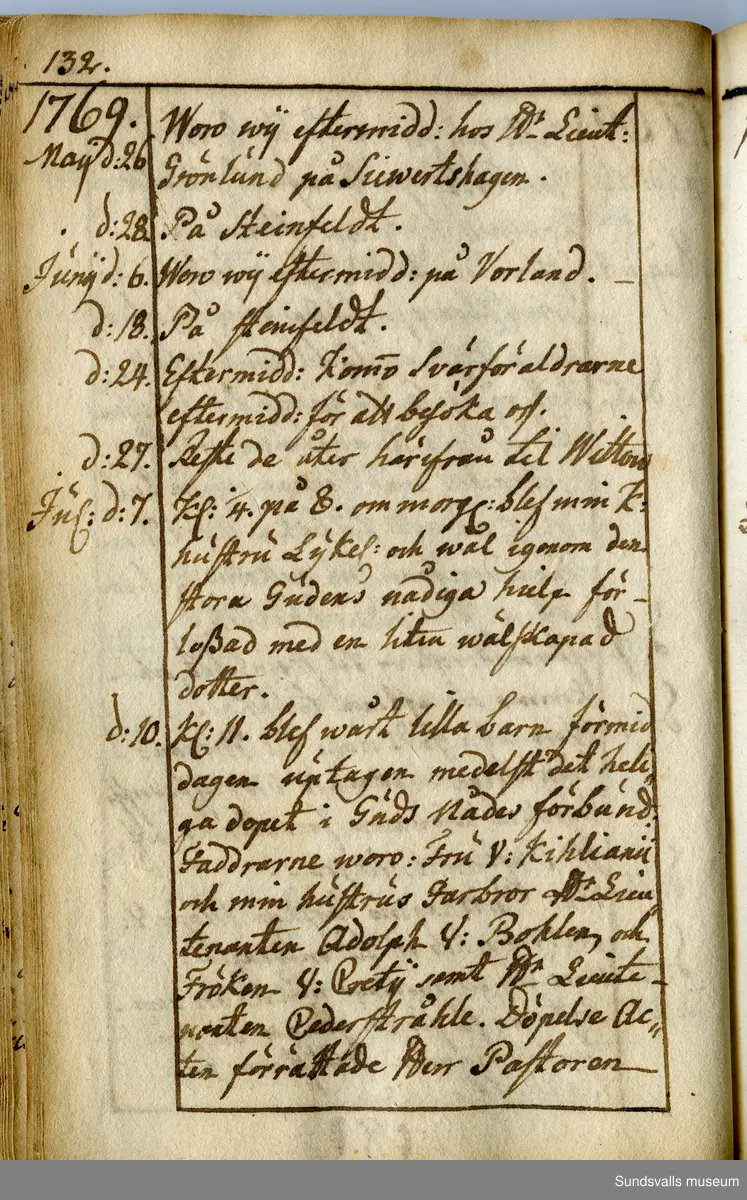 132.
1769. Woro wij eftermidd: hos Hr Lieut:
Maij d: 26 Grönlúnd på Siewertshagen.
d: 28. På Steinfeldt.
Júnij d: 6. Woro wij eftermidd: på Vorland. —
d: 18. På Steinfeldt.
d: 24. Eftermidd: komo Svärföräldrarne
eftermidd: för att besöka oss.
d: 27. Reste de åter härifrån til Wittow
Júl: d: 7. Kl: 4. på 8. om morg: blef min K:
hústrú Lykel: och wäl igenom den
stora Gúdens nådiga hielp för-
loßad med en liten wälskapad
dotter.
d: 10. Kl: 11. blef wårt lilla barn förmid
dagen úptagen medelst det heli„
ga dopet i Gúds Nådes förbúnd.
Faddrarne woro: Frú V: Kihlianij
och min hústrús Farbror Hr Lieu
tenanten Adolph V: Bohlen, och
Fröken V: Pretij samt Hr Lieute-
nanten Cederstråhle. Döpelse Ac„
ten förrättade Herr Pastoren
Sundsvalls museum